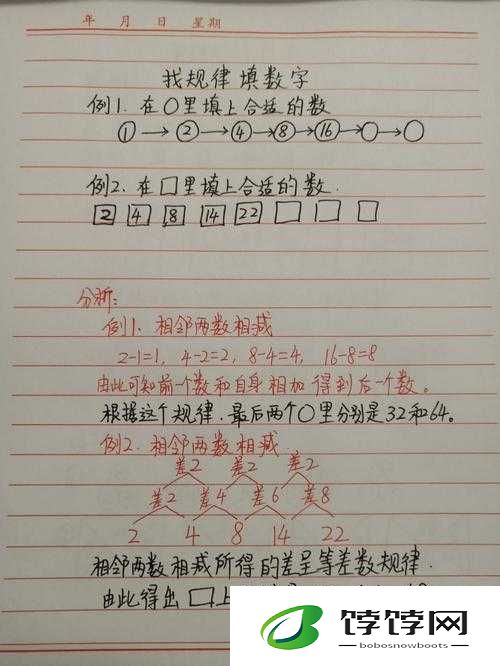 年 月 日 星期
找规律填数字
例1. 在○里填上合适的数
① → ② → ④ → ⑧ → ⑯ → ○ → ○
例2. 在□里填上合适的数.
2 4 8 14 22 □ □ □
分析:
例1、相邻两数相减
2-1=1, 4-2=2, 8-4=4, 16-8=8
由此可知前一个数和自身相加得到后一个数。
根据这个规律.最后两个○里分别是32和64。
例2.相邻两数相减
差2 差2 差2
差2 差4 差6 差8
2 4 8 14 22
相邻两数相减所得的差呈等差数规律.
由此得出□上
饽饽网
bobosnowboots.com